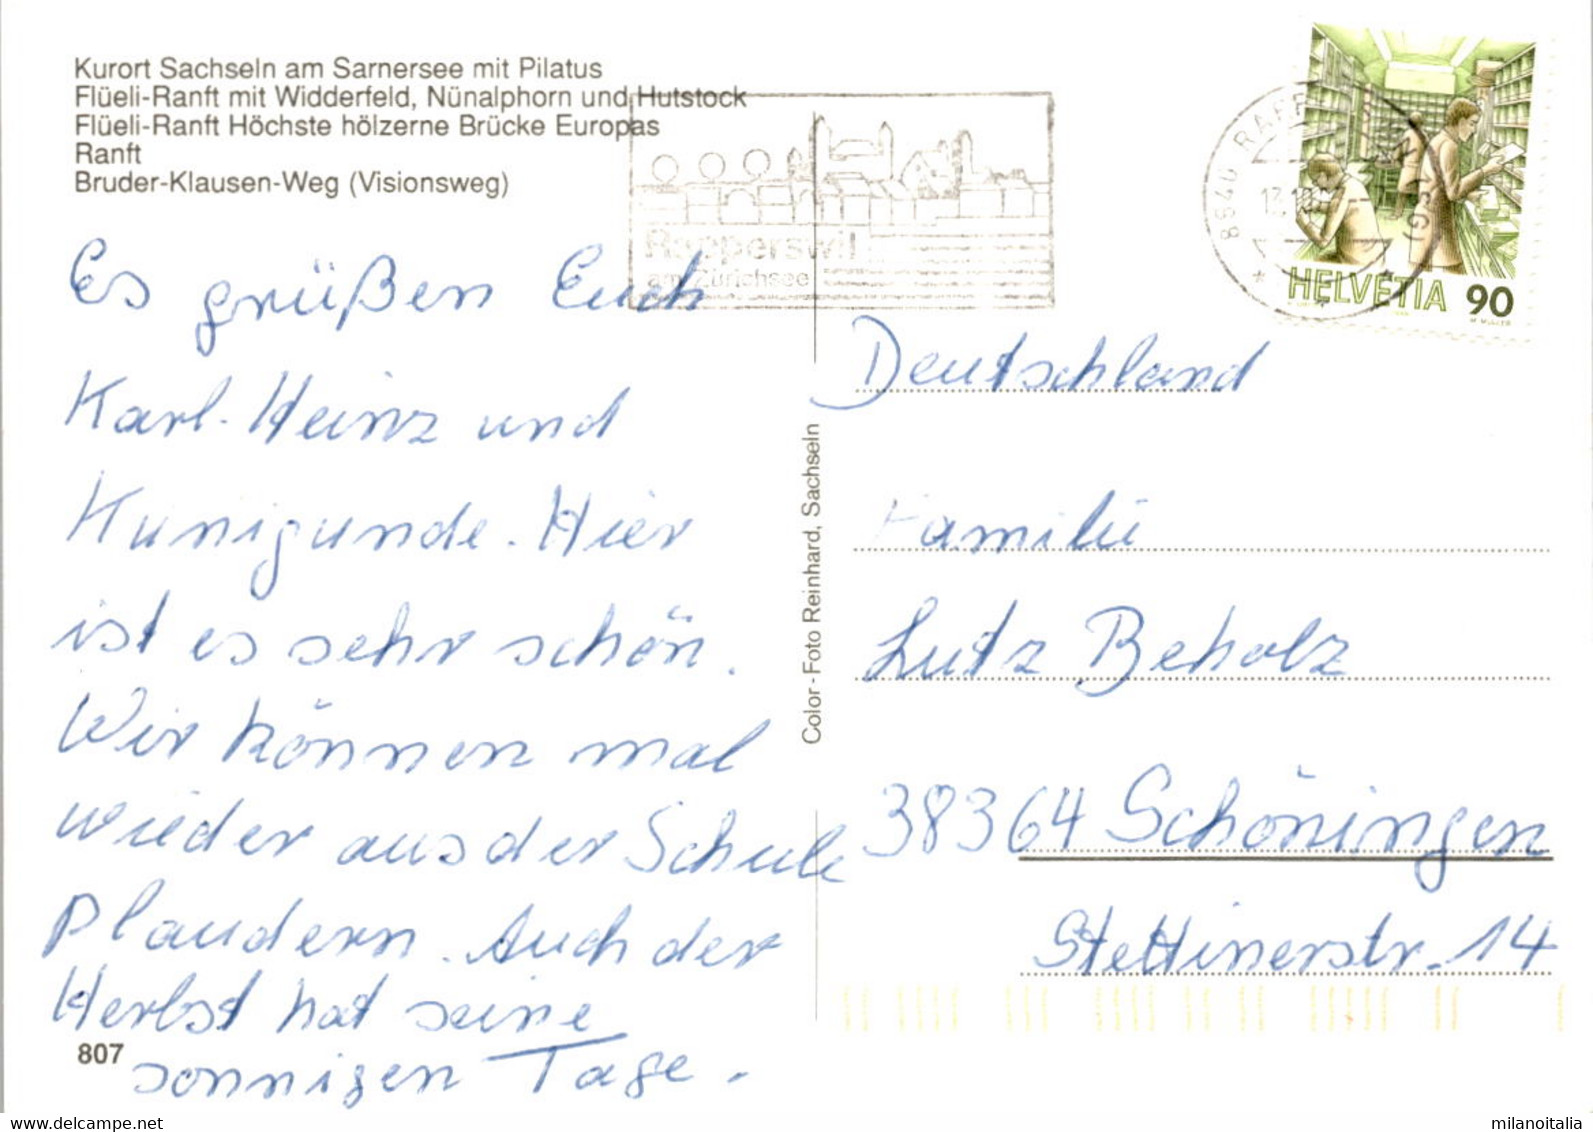 Kurort Sachseln am Sarnersee mit Pilatus
Flüeli-Ranft mit Widderfeld, Nünalphorn und Hutstock
Flüeli-Ranft Höchste hölzerne Brücke Europas
Ranft
Bruder-Klausen-Weg (Visionsweg)
Rapperswil
am Zürichsee
8640
HELVETIA 90
M. MÜLLER
Es grüßen Euch
Karl-Heinz und
Kunigunde. Hier
ist es sehr schön.
Wir können mal
wieder aus der Schule
Plaudern. Auch der
Herbst hat seine
sonnigen Tage.
807
Color-Foto Reinhard, Sachseln
Deutschland
Familie
Lutz Beholz
38364 Schöningen
Stettinerstr. 14
https://www.delcampe.net
milanoitalia